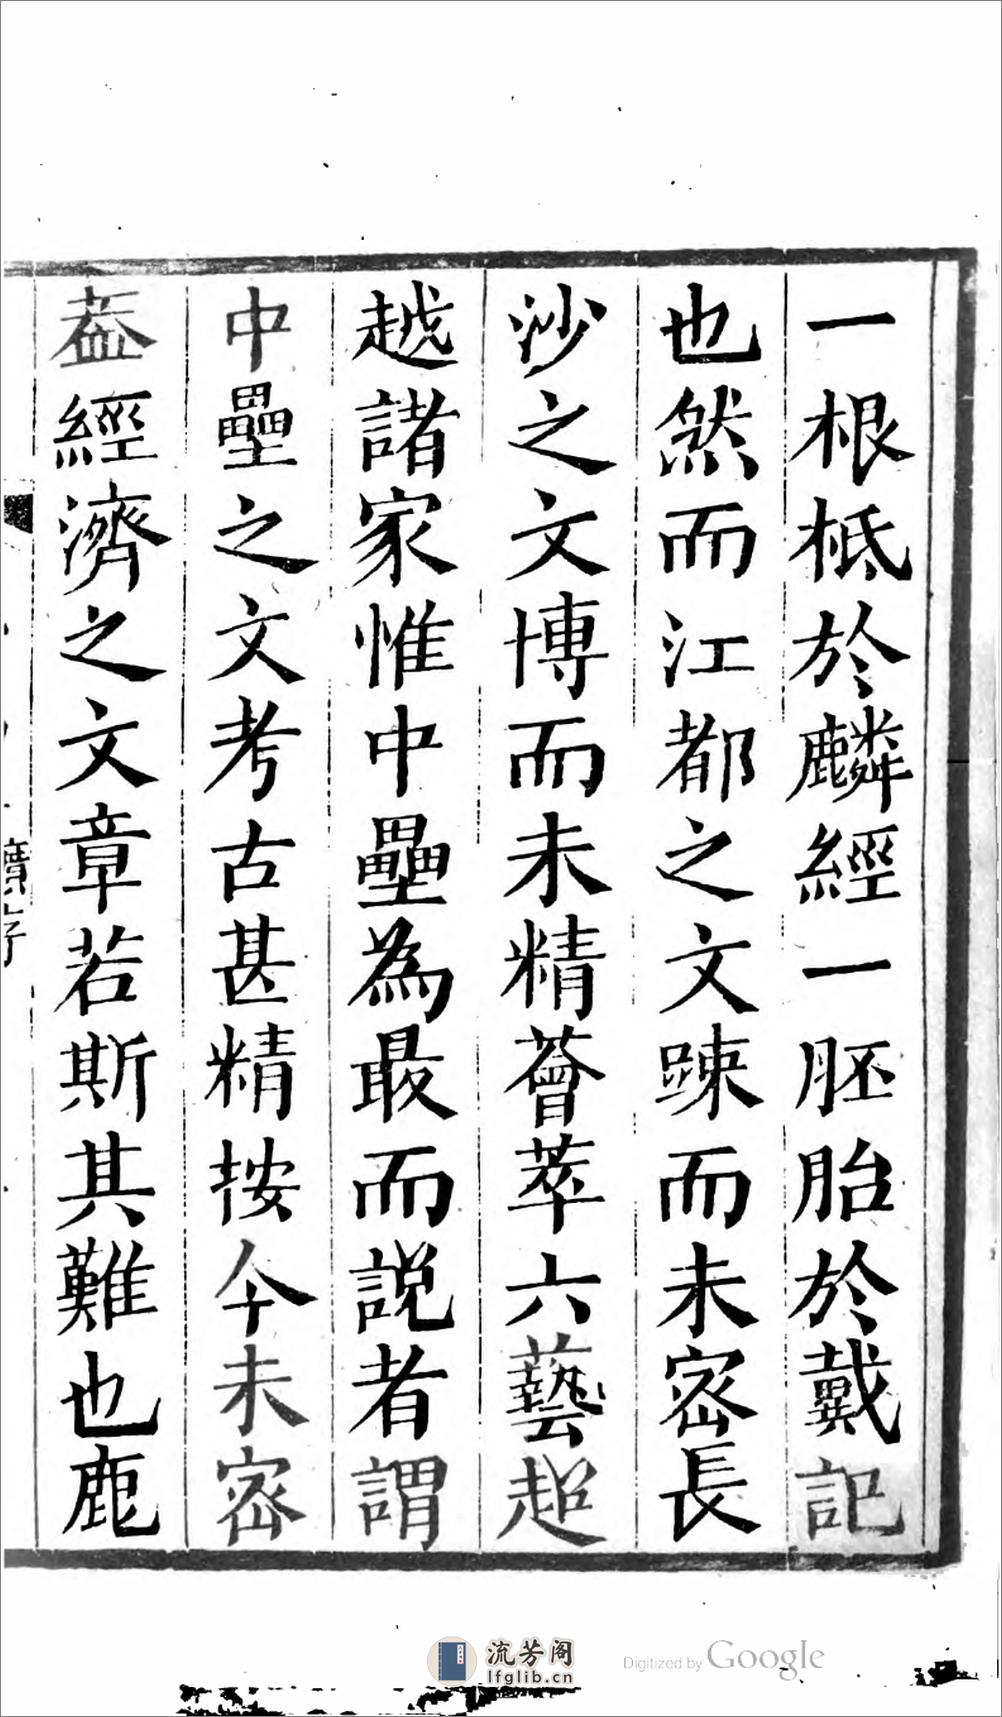 一根柢於麟經一胚胎於戴記
也然而江都之文踈而未密長
沙之文博而未精薈萃六藝超
越諸家惟中壘為最而説者謂
中壘之文考古甚精按今未密
葢經濟之文章若斯其難也鹿
流芳阁
lfglib.cn
Digitized by Google